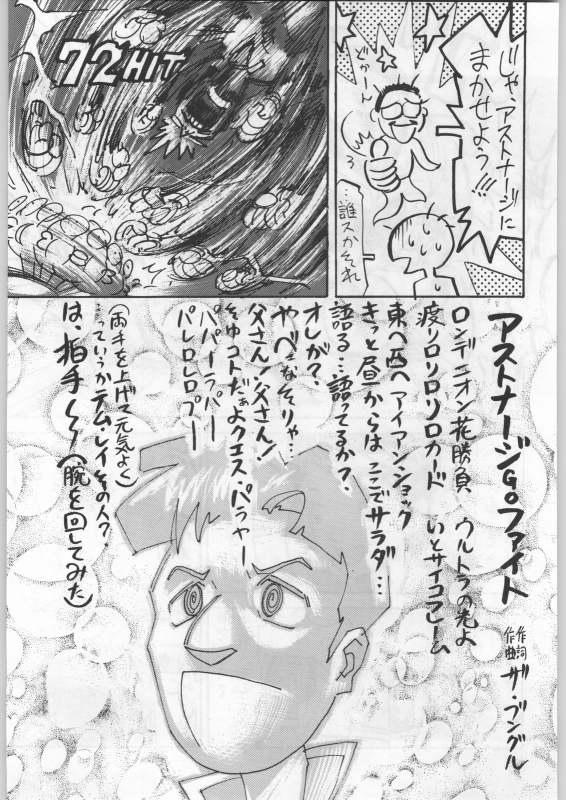 じゃ、アストナージに
まかせよう!!!
どかーん
…誰スかそれ
72HIT
アストナージGo.ファイト
作詞
作曲
ザ・ブングル
ロンデニオン花勝負 ウルトラの光よ
渡りロリロリソロカード いとサイコフレーム
東へ西へ アイアンショック
きっと昼からは ここでサラダ…
語る…語ってるか?
オレが?
やべーなそりゃ…
父さん!父さん!
そゆコトだぁよクエス・パラャー
パパーラパー
パレロレロプー
(両手を上げて元気よく)
…っていうかテム・レイその人?
は、拍手〜〜(腕を回してみた)